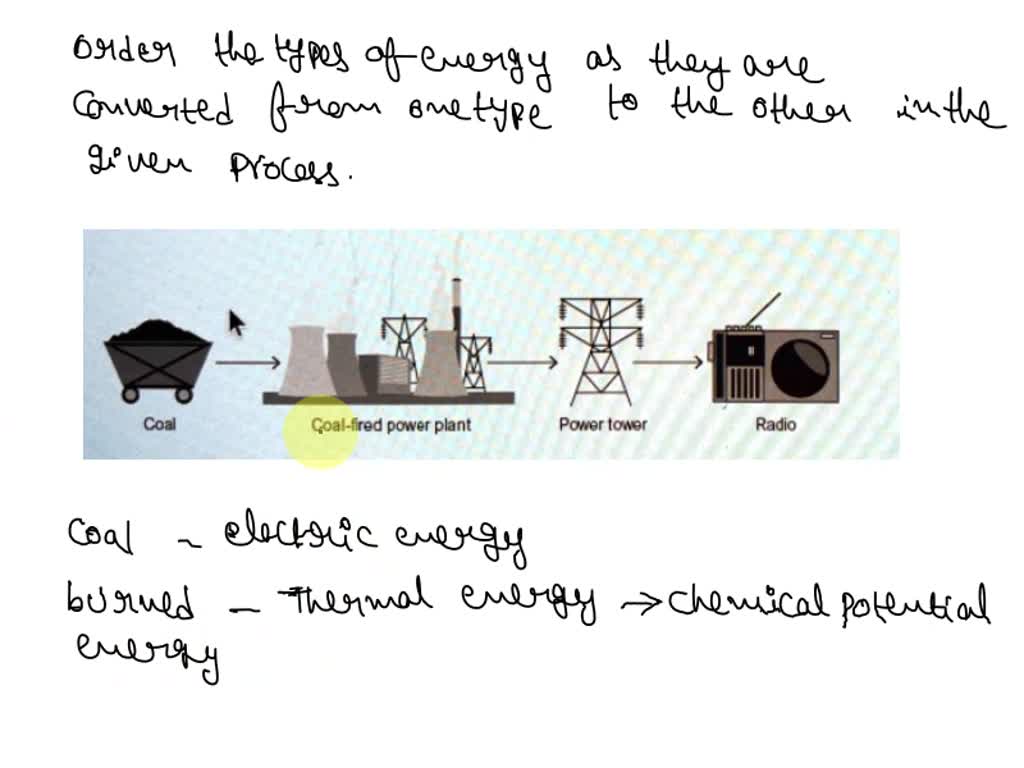 order the types of energy as they are
converted from one type to the other in the
given process.
Coal
Coal-fired power plant
Power tower
Radio
Coal ~ electric energy
burned - Thermal energy → chemical potential
energy